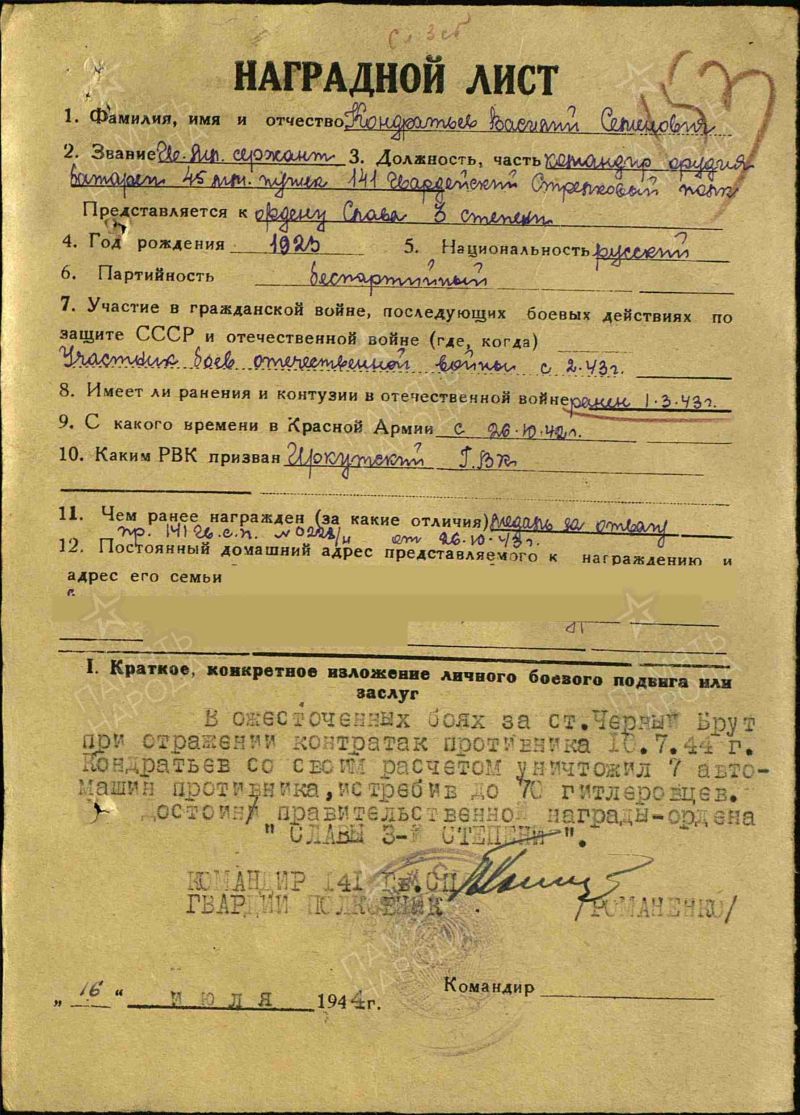 НАГРАДНОЙ ЛИСТ
1. Фамилия, имя и отчество Кондратьев Василий Семенович
2. Звание Гв. мл. сержант 3. Должность, часть командир орудия
батареи 45 мм. пушек 141 Гвардейский Стрелковый полк
Представляется к ордену Слава 3 степени
4. Год рождения 1925 5. Национальность русский
6. Партийность беспартийный
7. Участие в гражданской войне, последующих боевых действиях по
защите СССР и отечественной войне (где, когда)
Участник боев отечественной войны с 2.43г.
8. Имеет ли ранения и контузии в отечественной войне ранен 1.3.43г.
9. С какого времени в Красной Армии с 26.10.42г.
10. Каким РВК призван Иркутский Г.В.К
11. Чем ранее награжден (за какие отличия) медаль за отвагу
пр. 141 Гв.с.п. от 26.10.43г.
12. Постоянный домашний адрес представляемого к награждению и
адрес его семьи
I. Краткое, конкретное изложение личного боевого подвига или
заслуг
В ожесточенных боях за ст.Черный Брут
при отражении контратак противника 10.7.44 г.
Кондратьев со своим расчетом уничтожил 7 авто-
машин противника, истребив до 70 гитлеровцев.
Достоин правительственной награды-ордена
" СЛАВЫ 3-й СТЕПЕНИ ".
КОМАНДИР 141 Гв.СП
ГВАРДИИ ПОЛКОВНИК /РОМАНЕНКО/
Командир
„ 16 “ ИЮЛЯ 1944г.
ПАМЯТЬ
НАРОДА